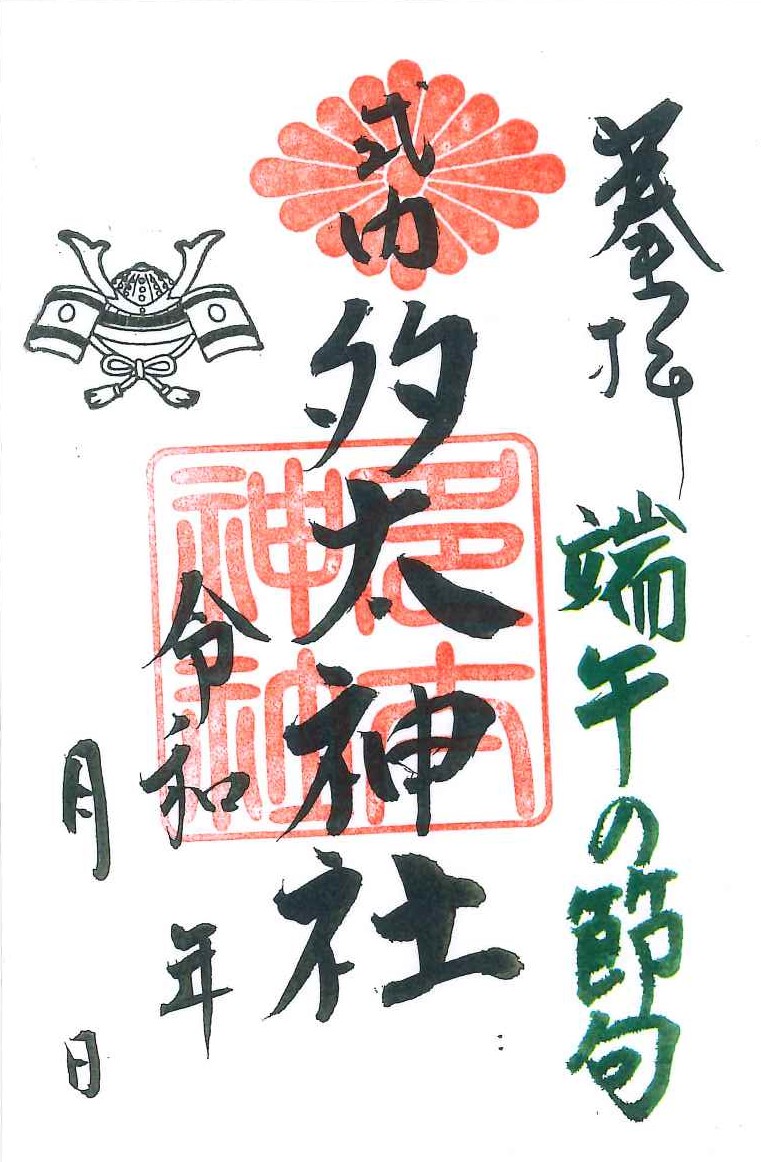 端午の節句
式内
多太神社
多太
神社
令和　年
月　日